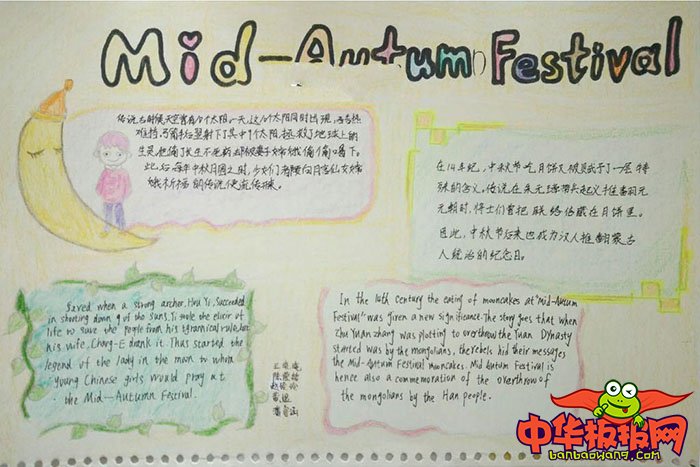 Mid-Autumn Festival
传说古时候天空曾有10个太阳。一天,这10个太阳同时出现,酷热
难挡。弓箭手后羿射下了其中9个太阳,拯救了地球上的
生灵,他偷了长生不死药,却被妻子嫦娥偷偷喝下。
此后每年中秋月圆之时,少女们都要向月宫仙女嫦
娥祈福的传说便流传开来。
在14世纪,中秋节吃月饼又被赋予了一层特
殊的含义。传说在朱元璋带兵起义推翻元
元朝时,将士们曾把联络信藏在月饼里。
因此,中秋节后来也成为汉人推翻蒙古
人统治的纪念日。
Saved when a strong archer, Hou Yi, succeeded
in shooting down 9 of the suns. Yi stole the elixir of
life to save the people from his tyrannical rule, but
his wife, Chang-E drank it. Thus started the
legend of the lady in the moon to whom
young Chinese girls would pray at
the Mid-Autumn Festival.
In the 14th century the eating of mooncakes at "mid-Autumn
Festival" was given a new significance. The story goes that when
Zhu Yuan zhang was plotting to overthrow the Yuan Dynasty
started was by the mongolians, the rebels hid their messages
the Mid-Autumn Festival mooncakes. Mid Autumn Festival is
hence also a commemoration of the overthrow of
the mongolians by the Han people.
中华板报网
banbaowang.com